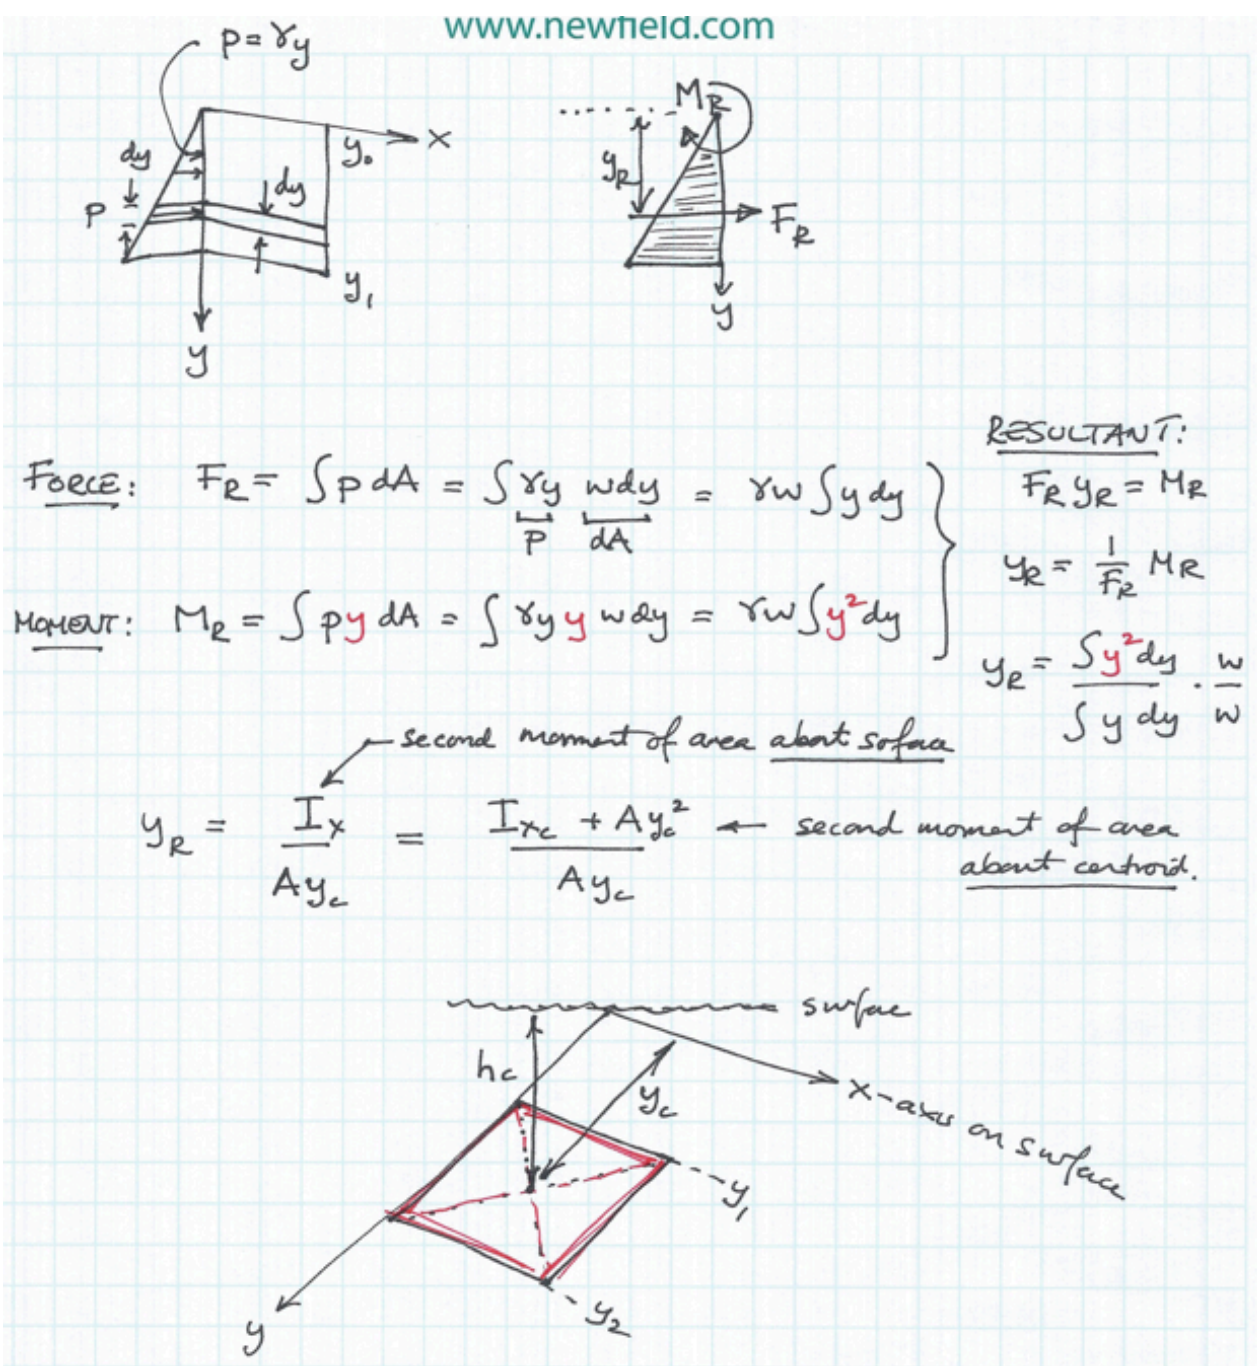 www.newfield.com
p = γy
x
y₀
dy
dy
P
y₁
y
M_R
y_R
F_R
y
FORCE: F_R = ∫ p dA = ∫ γy w dy = γw ∫ y dy
P dA
MOMENT: M_R = ∫ p y dA = ∫ γy y w dy = γw ∫ y² dy
RESULTANT:
F_R y_R = M_R
y_R = 1/F_R M_R
y_R = ∫ y² dy / ∫ y dy · w/w
second moment of area about soface
y_R = I_x / A y_c = I_xc + A y_c² / A y_c ← second moment of area
about centroid.
surfac
h_c
y_c
x-axis on surface
y₁
y₂
y